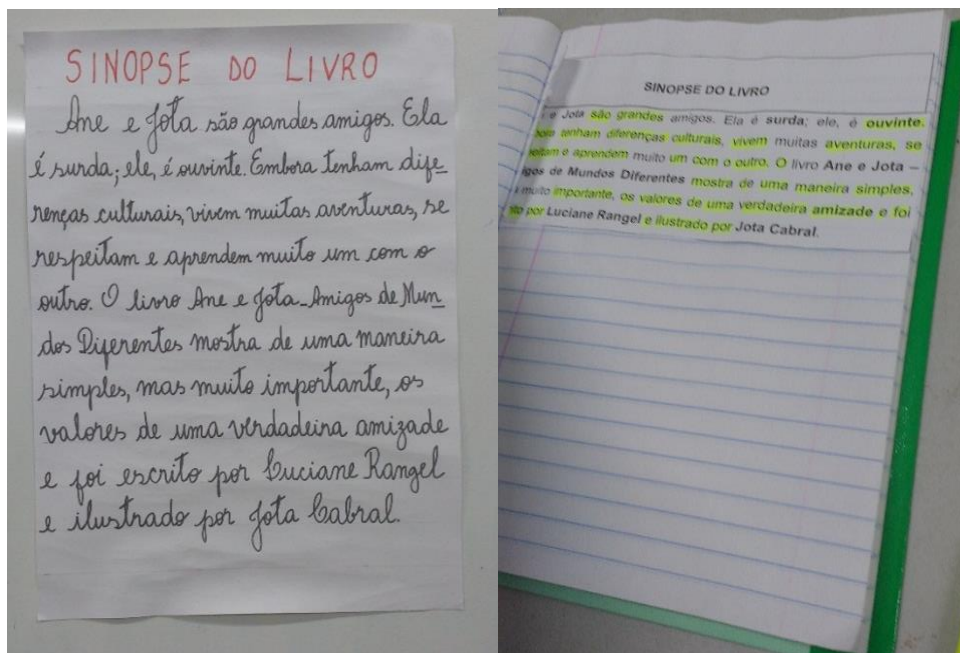 SINOPSE DO LIVRO
Ane e Jota são grandes amigos. Ela
é surda; ele, é ouvinte. Embora tenham dife-
renças culturais, vivem muitas aventuras, se
respeitam e aprendem muito um com o
outro. O livro Ane e Jota - Amigos de Mun-
dos Diferentes mostra de uma maneira
simples, mas muito importante, os
valores de uma verdadeira amizade
e foi escrito por Luciane Rangel
e ilustrado por Jota Cabral.
SINOPSE DO LIVRO
e Jota são grandes amigos. Ela é surda; ele, é ouvinte.
tenham diferenças culturais, vivem muitas aventuras, se
e aprendem muito um com o outro. O livro Ane e Jota –
de Mundos Diferentes mostra de uma maneira simples,
muito importante, os valores de uma verdadeira amizade e foi
por Luciane Rangel e ilustrado por Jota Cabral.